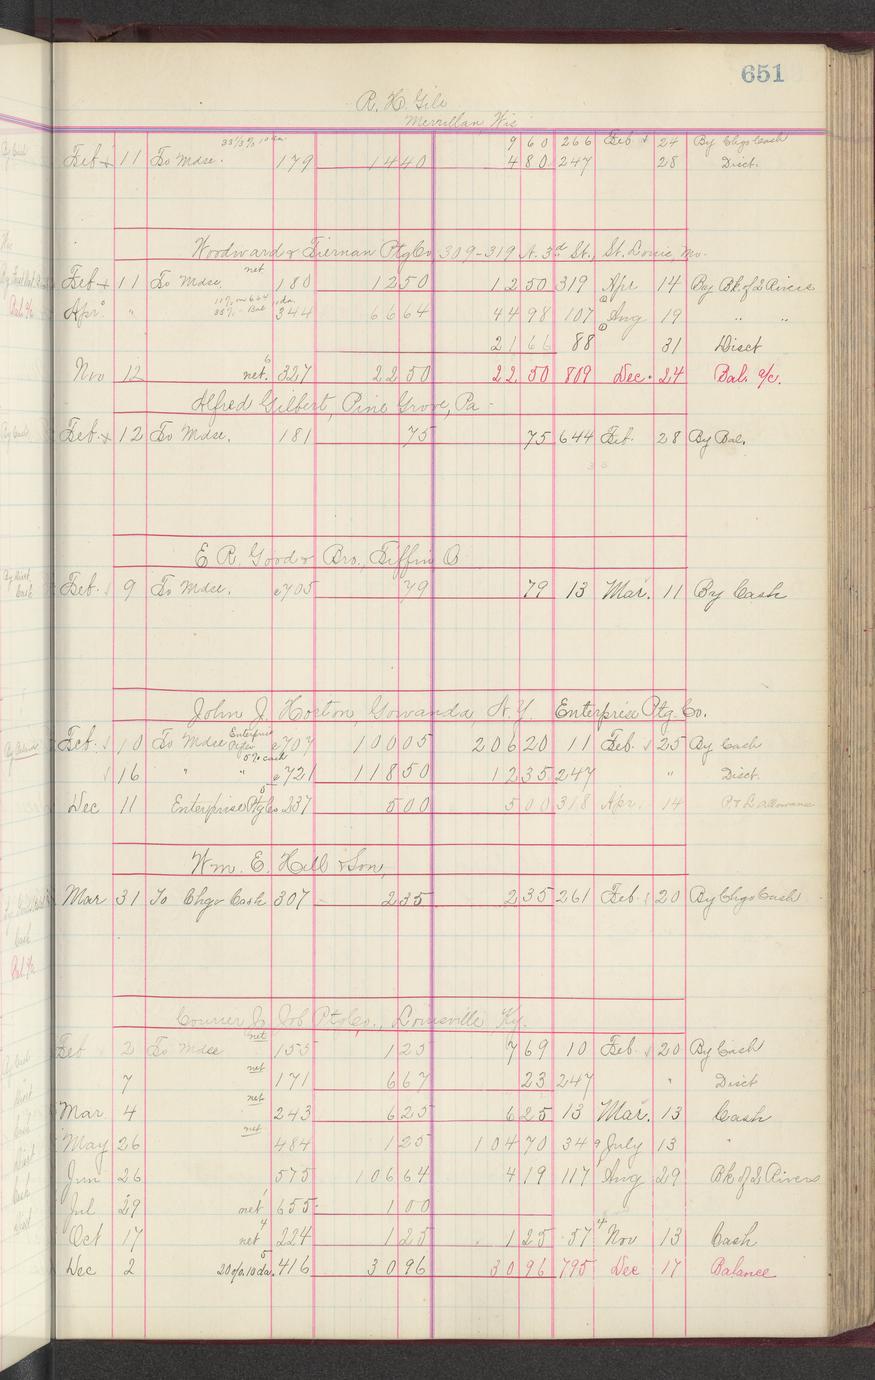 651
R. H. Gile
Merrillan, Wis
33 1/3 % 10 da. 9 60 266 Feb 24 By Chgo Cash
Feb 11 To Mdse. 179 14 40 4 80 247 28 Disct.
Woodward & Tiernan Ptg Co 309-319 N. 3d St., St. Louis, Mo.
Feb 11 To Mdse, net 180 12 50 12 50 319 Apr 14 By Bk of 2 Rivers
Apr " 344 66 64 44 98 107 Aug 19 " "
21 66 88 31 Disct
Nov 12 net. 6 327 22 50 22 50 819 Dec. 24 Bal. a/c.
Alfred Gilbert, Pine Grove, Pa -
Feb. 12 To Mdse. 181 75 75 644 Feb. 28 By Bal.
E R. Good & Bro., Tiffin O
Feb. 9 To Mdse. c705 79 79 13 Mar. 11 By Cash
John J. Horton, Gowanda, N.Y. Enterprise Ptg. Co.
Feb. 10 To Mdse Enterprise c707 100 05 206 20 11 Feb. 25 By Cash
5% cash
16 " " c721 118 50 12 35 247 " Disct.
Dec 11 Enterprise Ptg Co 237 5 00 5 00 318 Apr. 14 P & L allowance
Wm. E. Hill & Son,
Mar 31 To Chgo Cash 307 2 35 2 35 261 Feb. 20 By Chgo Cash
Courier J. Job Ptg Co., Louisville Ky.
Feb 2 To Mdse net 155 1 25 7 69 10 Feb. 20 By Cash
7 net 171 6 67 23 247 " Disct
Mar 4 net 243 6 25 6 25 13 Mar. 13 Cash
May 26 net 484 1 25 104 70 34 9 July 13 "
Jun 26 575 106 64 4 19 117 Aug 29 Bk of 2 Rivers
Jul 29 net 655 1 00
Oct 17 net 4 224 1 25 1 25 57 4 Nov 13 Cash
Dec 2 20% 10 da. 5 416 30 96 30 96 795 Dec 17 Balance